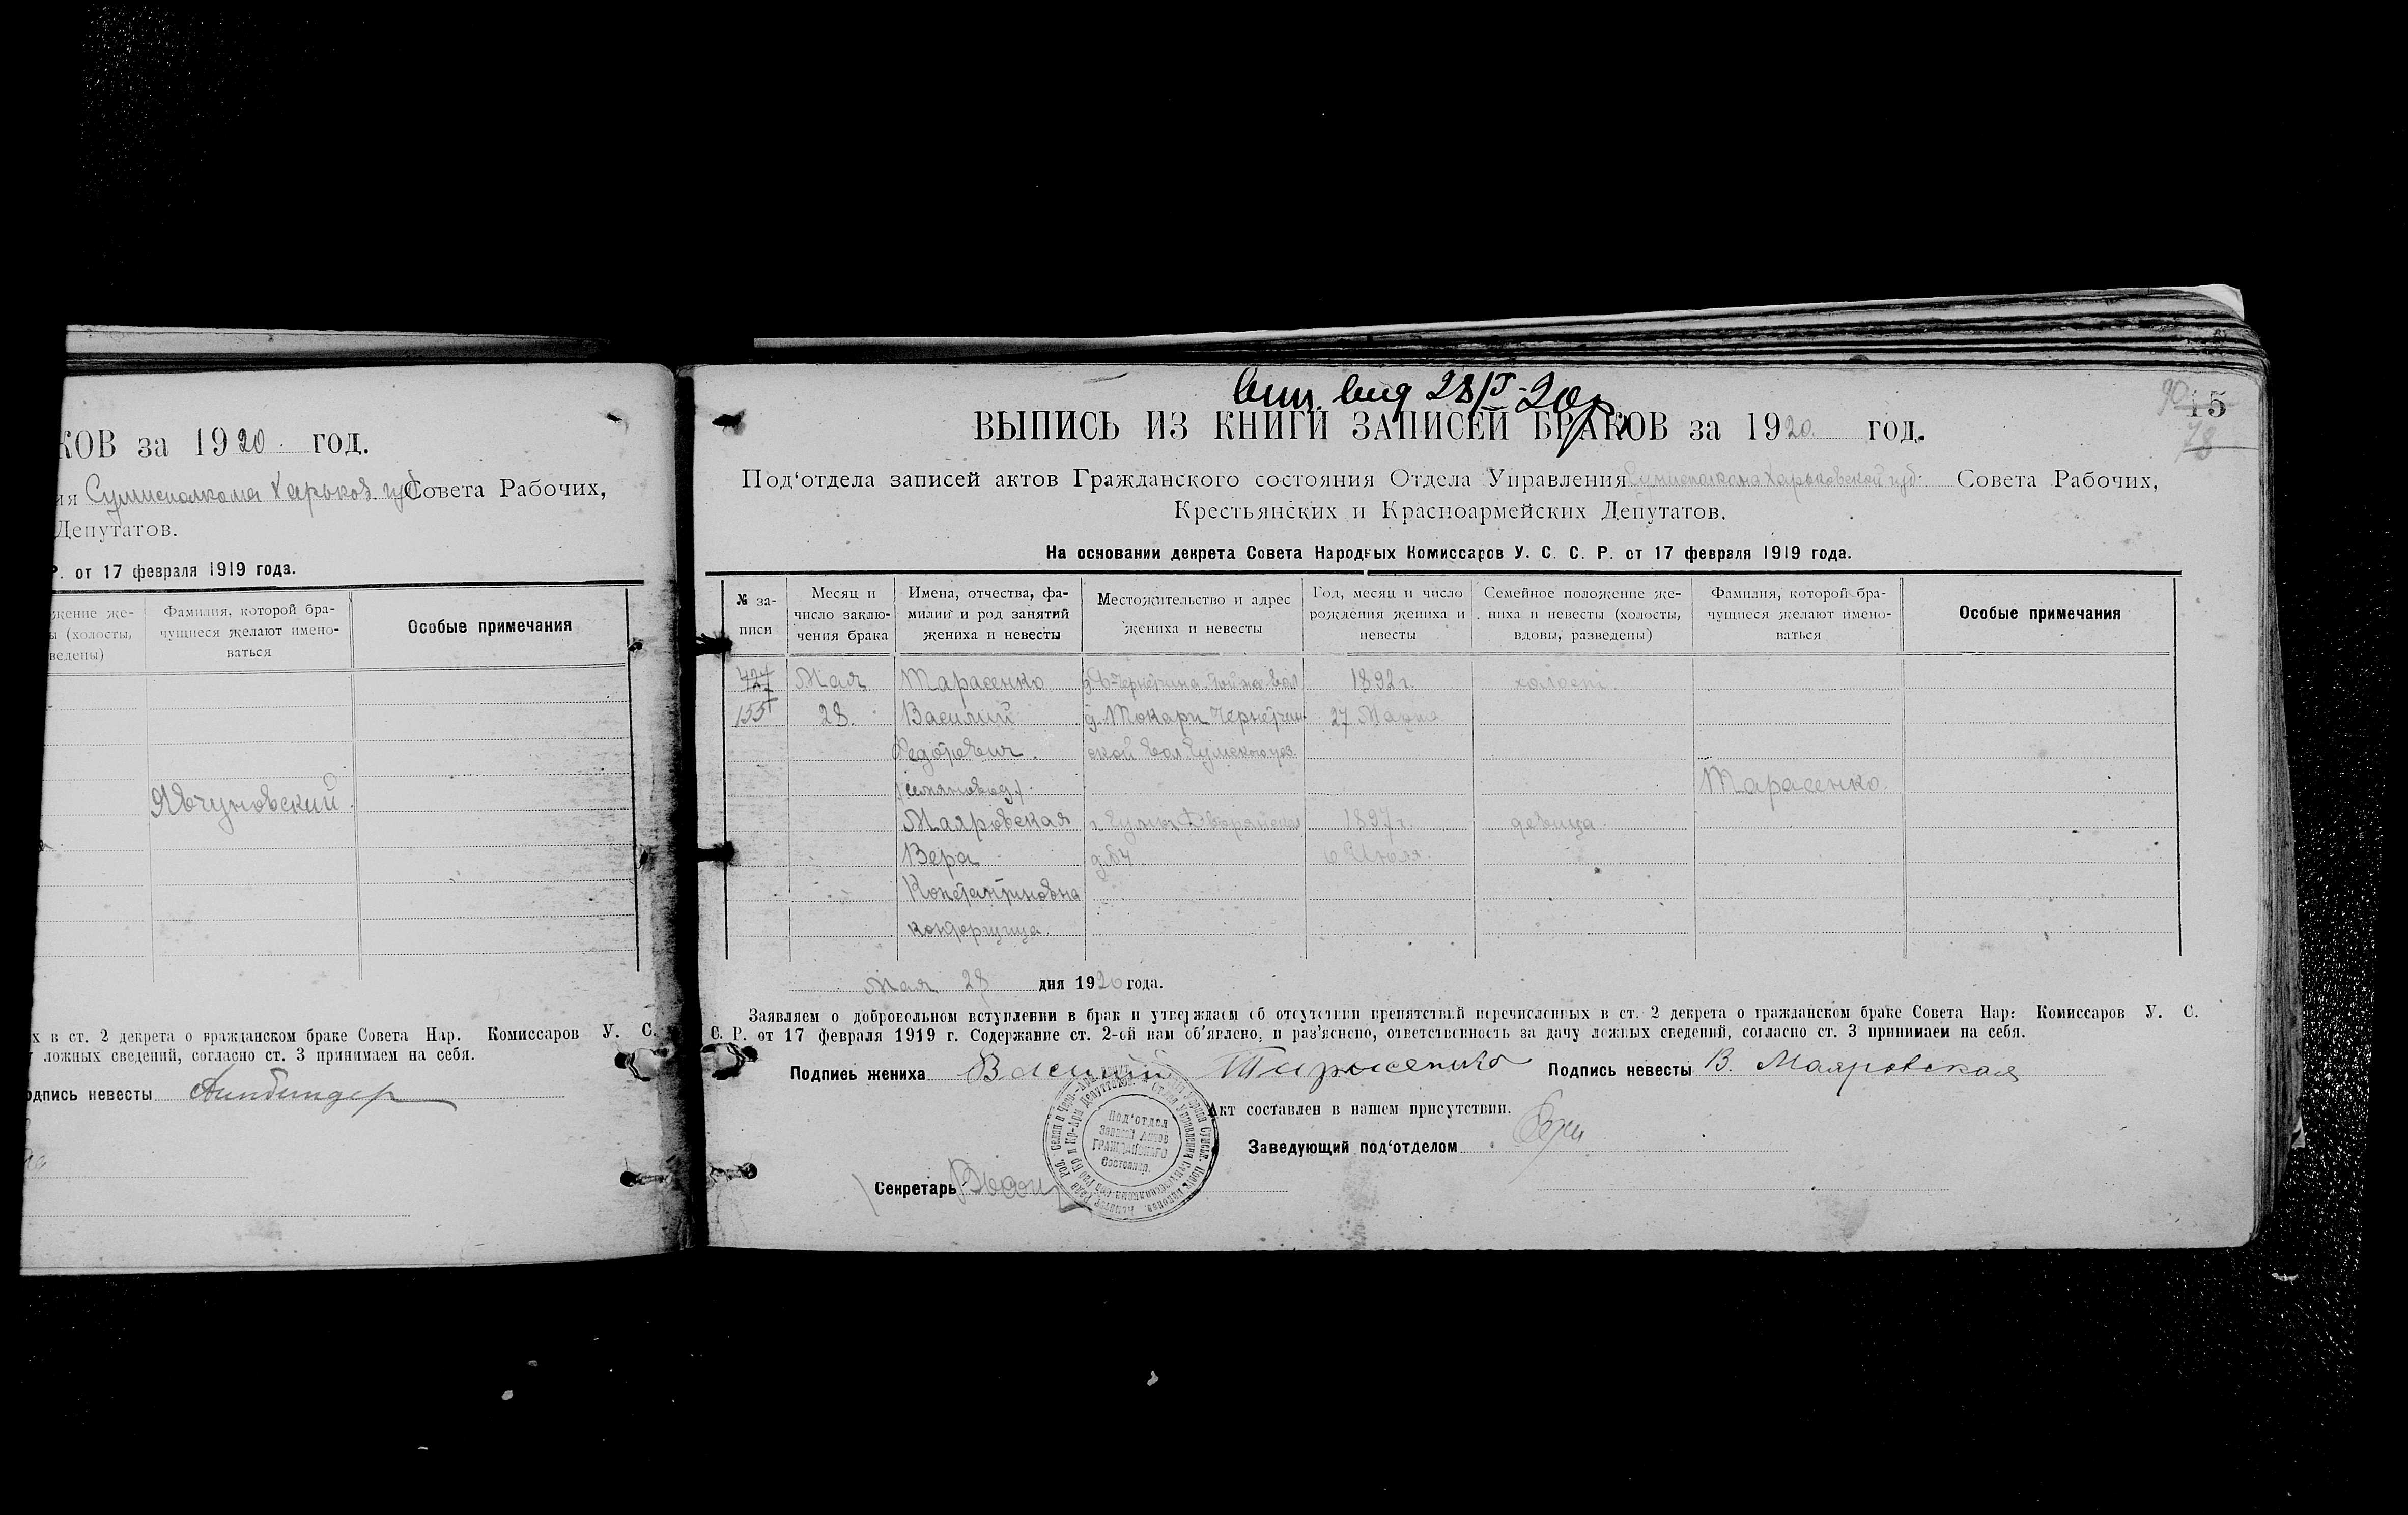 КОВ за 1920 год.
ия Сумисполкома Харьков. губ Совета Рабочих,
Депутатов.
Р. от 17 февраля 1919 года.
жение же-
ы (холосты,
ведены)
Фамилия, которой бра-
чущиеся желают имено-
ваться
Особые примечания
Явчуновский
х в ст. 2 декрета о гражданском браке Совета Нар. Комиссаров У. С.
ложных сведений, согласно ст. 3 принимаем на себя.
одпись невесты
вид 28/V-20
90 15
78
ВЫПИСЬ ИЗ КНИГИ ЗАПИСЕЙ БРАКОВ за 1920 год.
Под‘отдела записей актов Гражданского состояния Отдела Управления Сумисполкома Харьковской губ. Совета Рабочих,
Крестьянских и Красноармейских Депутатов.
На основании декрета Совета Народных Комиссаров У. С. С. Р. от 17 февраля 1919 года.
№ за-
писи
Месяц и
число заклю-
чения брака
Имена, отчества, фа-
милии и род занятий
жениха и невесты
Местожительство и адрес
жениха и невесты
Год, месяц и число
рождения жениха и
невесты
Семейное положение же-
ниха и невесты (холосты,
вдовы, разведены)
Фамилия, которой бра-
чущиеся желают имено-
ваться
Особые примечания
427 Мая Тарасенко 1892 г. холост
155 28. Василий д. Токари Чернетчин 27 Марта
Федорович. ской вол Сумского уез.
Тарасенко.
Маяровская г. Сумы Дворянская 1897 г. девица
Вера д. 64 6 Июля
Константиновна
конторщица.
мая 28 дня 1920 года.
Заявляем о добровольном вступлении в брак и утверждаем об отсутствии препятствий перечисленных в ст. 2 декрета о гражданском браке Совета Нар. Комиссаров У. С.
С. Р. от 17 февраля 1919 г. Содержание ст. 2-ой нам об‘явлено, и раз‘яснено, ответственность за дачу ложных сведений, согласно ст. 3 принимаем на себя.
Подпись жениха Василий Тарасенко Подпись невесты В. Маяровская
Акт составлен в нашем присутствии.
Заведующий под‘отделом
Под‘отдел
Записей Актов
ГРАЖДАНСКОГО
Состояния.
Секретарь